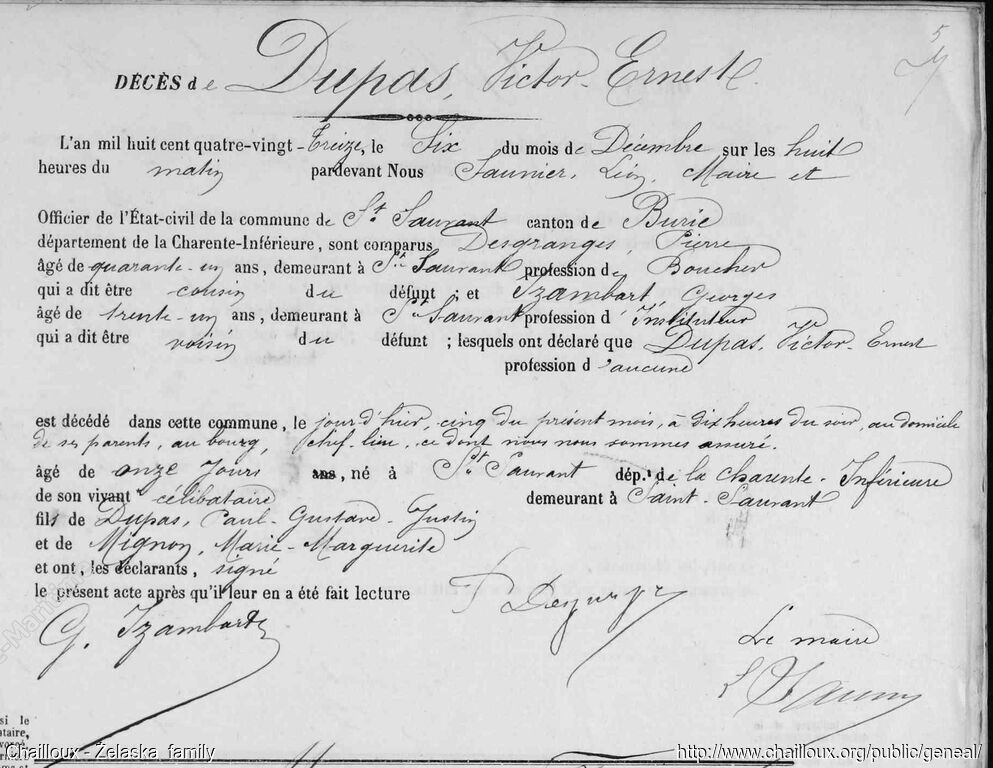 5
DÉCÈS de Dupas, Victor-Ernest.
L'an mil huit cent quatre-vingt-treize, le Six du mois de Décembre sur les huit
heures du matin pardevant Nous Saunier, Léon, Maire et
Officier de l'État-civil de la commune de St. Sauvant canton de Burie
département de la Charente-Inférieure, sont comparus Desgranges Pierre
âgé de quarante-un ans, demeurant à St. Sauvant profession de Boucher
qui a dit être cousin du défunt ; et Izambart, Georges
âgé de trente-un ans, demeurant à St. Sauvant profession d'Instituteur
qui a dit être voisin du défunt ; lesquels ont déclaré que Dupas, Victor-Ernest
profession d'aucune
est décédé dans cette commune, le jour d'hier, cinq du présent mois, à dix heures du soir, au domicile
de ses parents, au bourg, chef-lieu, ce dont nous nous sommes assuré.
âgé de onze jours ans, né à St Sauvant dép.t de la Charente-Inférieure
de son vivant célibataire demeurant à Saint-Sauvant
fils de Dupas, Paul-Gustave-Justin
et de Mignon, Marie-Marguerite
et ont, les déclarants, signé
le présent acte après qu'il leur en a été fait lecture
G. Izambart
P Desgranges
Le maire
L Saunier
e-Maritime
si le
ataire,
Chailloux - Zelaska family
http://www.chailloux.org/public/geneal/